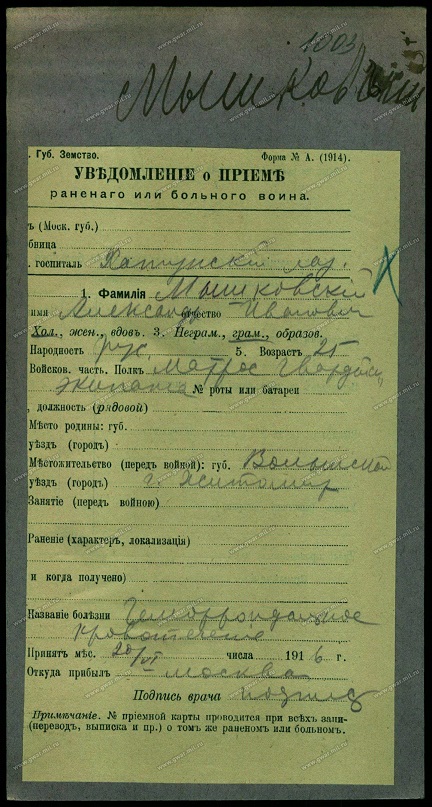 1003
Мышковскій
. Губ. Земство. Форма № А. (1914).
УВѢДОМЛЕНІЕ о ПРІЕМѢ
раненаго или больного воина.
ъ (Моск. губ.)
бница
. госпиталь Хатунскій лаз.
1. Фамилія Мышковскій
имя Александр отчество Иванович
Хол., жен., вдов. 3. Неграм., грам., образов.
Народность рус. 5. Возраст 25
Войсков. часть. Полк Матрос Гвардейс.
экипажа № роты или батареи
, должность (рядовой)
Место родины: губ.
уѣзд (город)
Мѣстожительство (передъ войной): губ. Волынской
уѣзд (город) г. Житомир
Занятіе (передъ войною)
Раненіе (характеръ, локализація)
и когда получено)
Названіе болѣзни Геморроидальное
кровотеченіе
Принятъ мѣс. 20/VI числа 1916 г.
Откуда прибылъ Москва
Подпись врача подпис
Примѣчаніе. № пріемной карты проводится при всѣхъ запи-
(перевод, выписка и пр.) о томъ же раненомъ или больномъ.